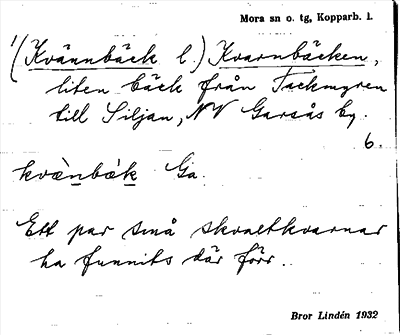 Mora sn o. tg, Kopparb. l.
1(Kvännbäck l.) Kvarnbäcken,
liten bäck från Tackmyren
till Siljan, NV Garsås by.
6.
kvæ̀nbǽk Ga.
Ett par små skvaltkvarnar
ha funnits där förr.
Bror Lindén 1932